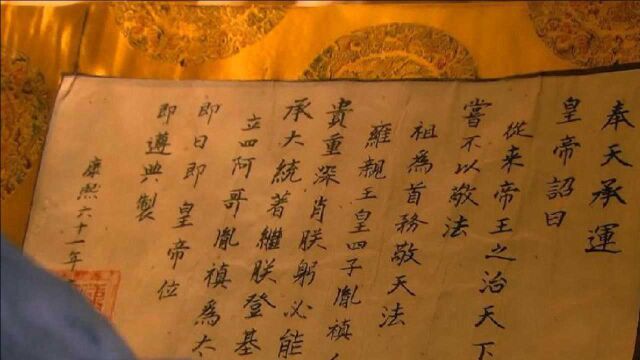 奉天承運
皇帝詔曰
從来帝王之治天下
嘗不以敬法
祖為首務敬天法
雍親王皇四子胤禛
貴重深肖朕躬必能
承大統著繼朕登基
立四阿哥胤禛為太
即日即皇帝位
即遵典製
康熙六十一年